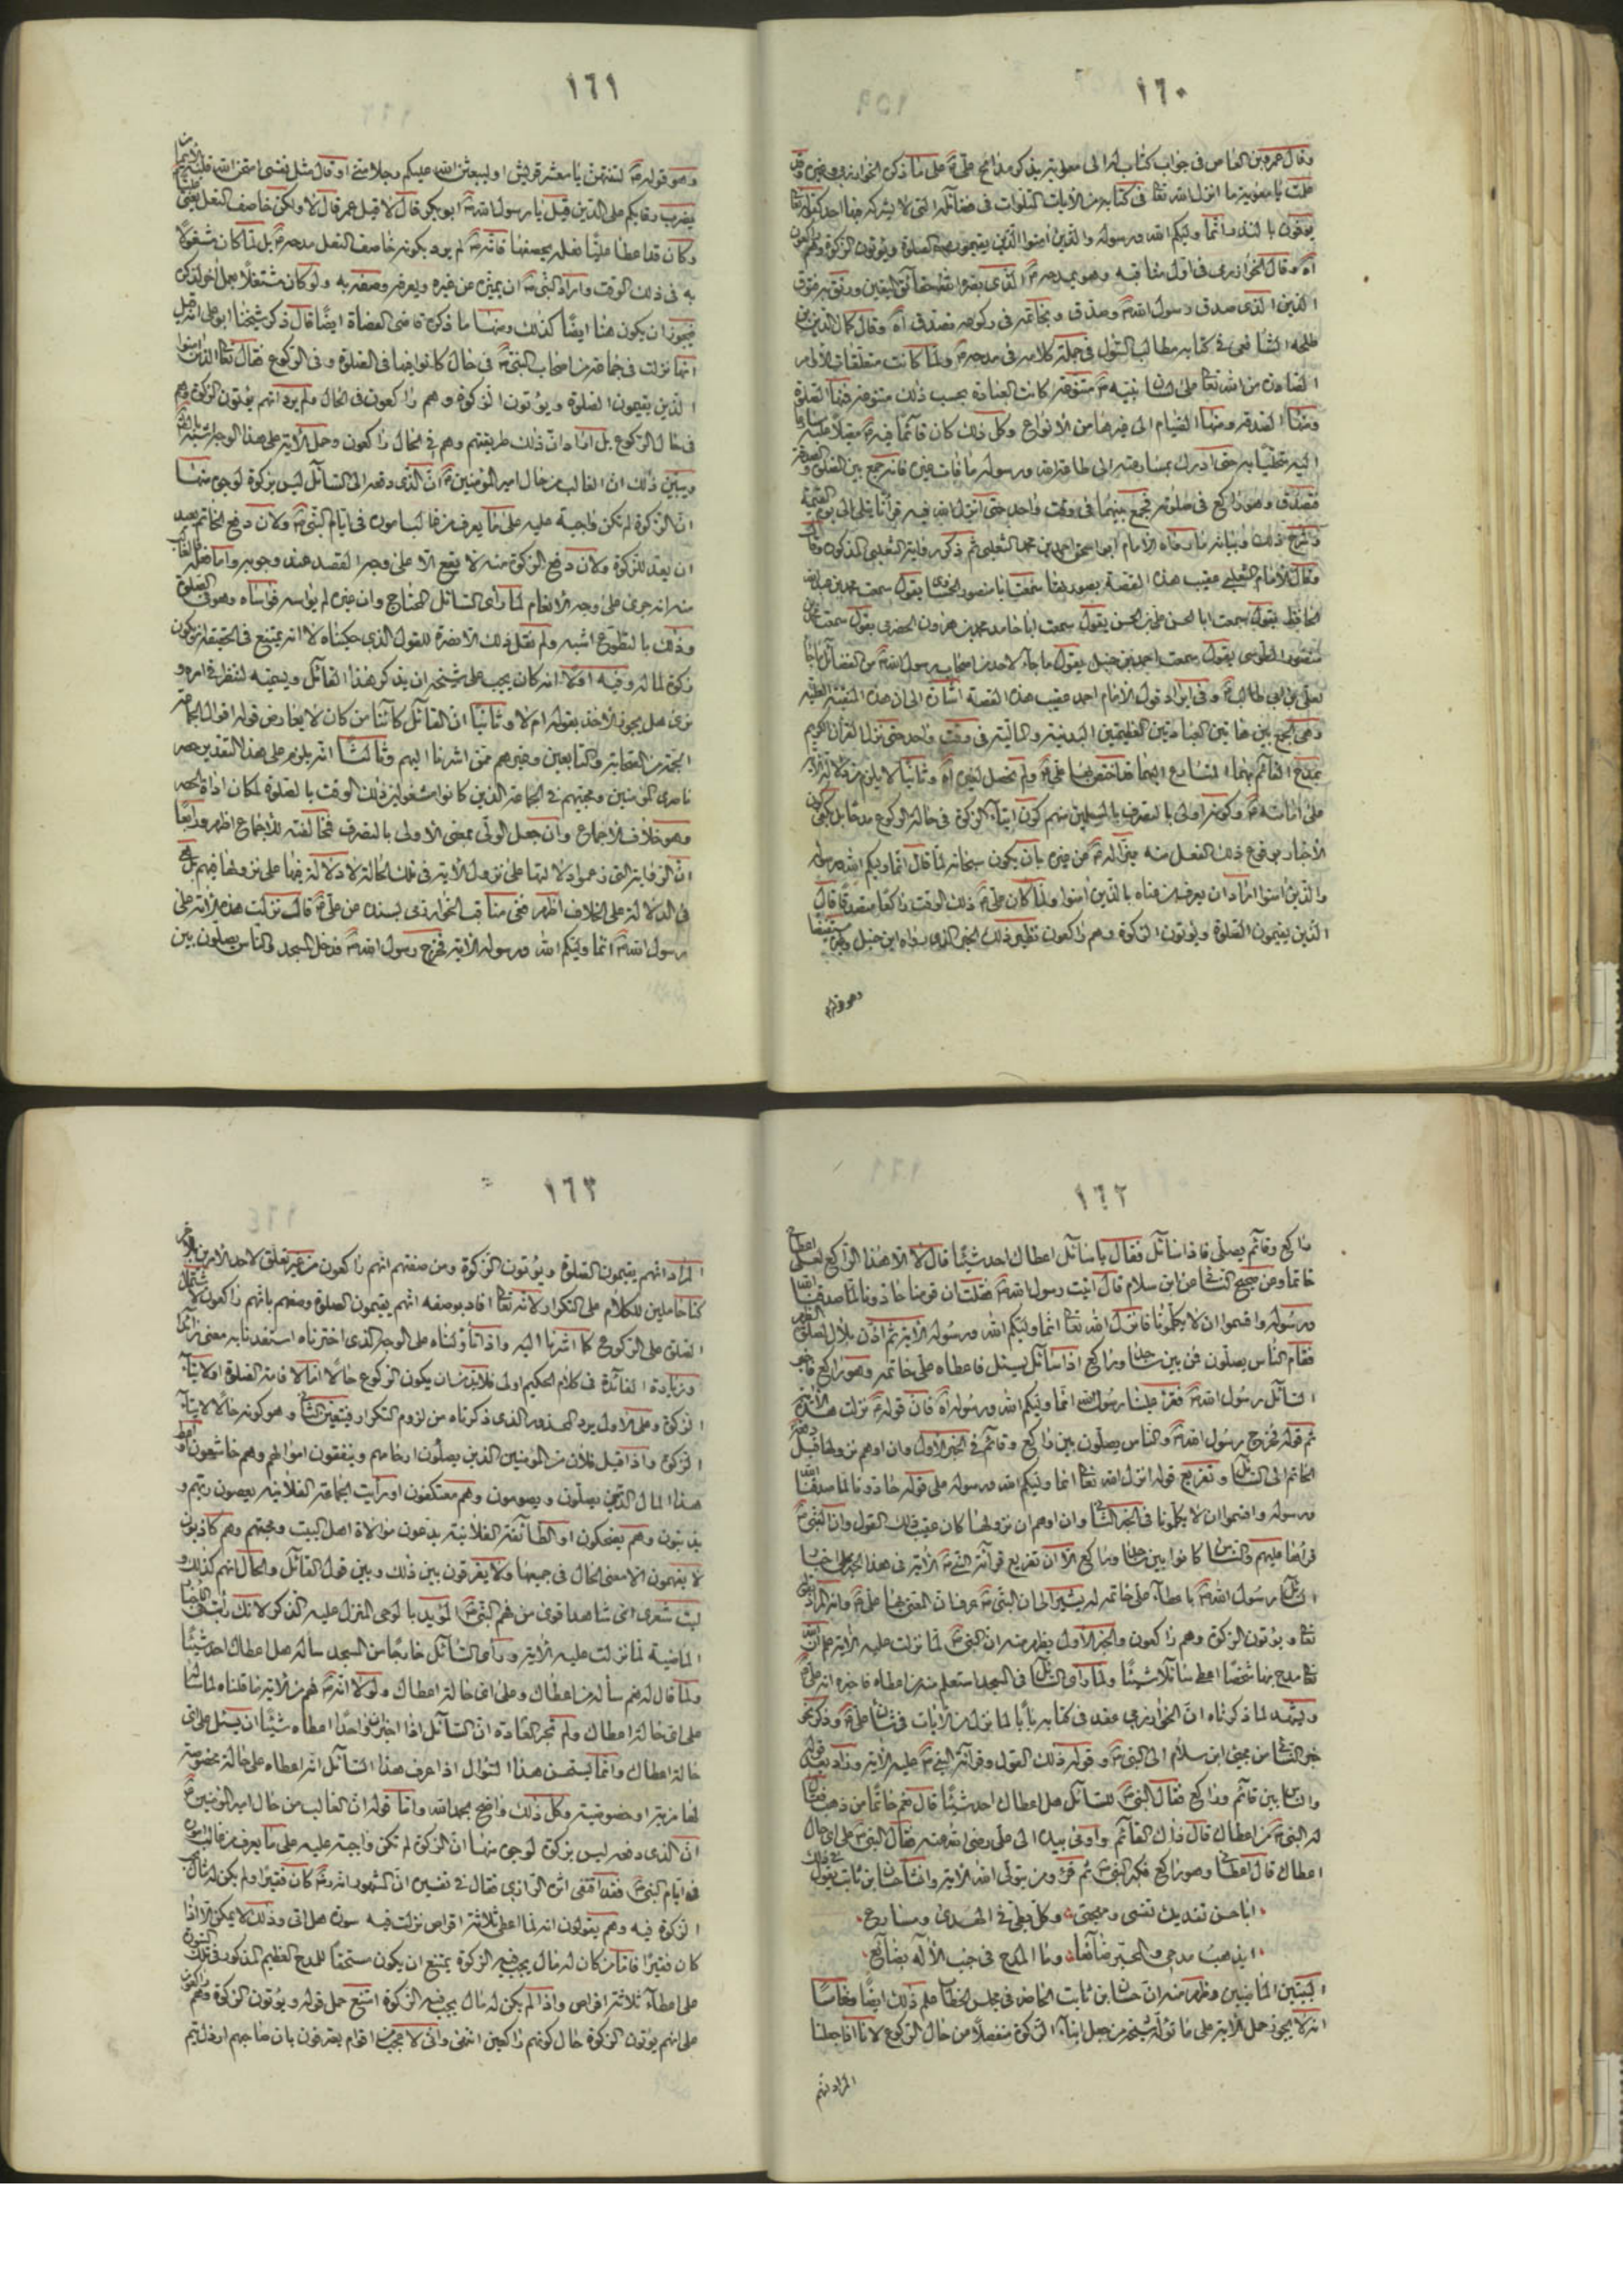 ١٦٠
وقال عمرو بن العاص فى جواب كتاب له الى معوية بذكر مدائح علىّ على ما ذكره الخوارزمى
علمت يا معوية ما انزل الله تعا فى كتابه من الآيات المتلوات فى فضائله التى لا يشركه فيها احد كقوله تعا
انما وليكم الله ورسوله والذين آمنوا الذين يقيمون الصلوة ويؤتون الزكوة وهم راكعون
وقال الخوارزمى فى اول مناقبه وهو يمدحه
الذى صدق رسول الله وصدق وبخاتمه فى ركوعه فصدق آه وقال كمال الدين بن
طلحه الشافعى فى كتابه مطالب السؤل فى جملة كلامه فى مدحه ولما كانت
الصادرة من الله تعا على لسان نبيه متنوعة كانت العبادة بحسب ذلك متنوعة فمنها الصلوة
ومنها الصدقة ومنها الصيام الى غيرها من الانواع وكل ذلك كان قائما فيه مقبلا عليه
حتى ادرك بمسارعته الى طاعة الله ورسوله ما فات غيره فانه جمع بين الصلوة والصدقة
فتصدق وهو راكع فى صلوته فجمع بينهما فى وقت واحد حتى انزل الله فيه قرآنا يتلى الى يوم القيمة
وشرح ذلك وبيانه ما رواه الامام ابو اسحق احمد بن محمد الثعلبى ثم ذكر رواية الثعلبى المذكورة وقال
وقال الامام الثعلبى عقيب هذه القصة سمعت ابا منصور يقول سمعت محمد بن عبد الله
الحافظ يقول سمعت ابا الحسن على بن الحسن يقول سمعت ابا حامد محمد بن هرون الحضرمى يقول سمعت محمد بن
منصور الطوسى يقول سمعت احمد بن حنبل يقول ما جاء لاحد من اصحاب رسول الله من الفضائل ما جاء
لعلى بن ابى طالب وفى ايراد قول الامام احمد عقيب هذه القصة اشارة الى ان هذه المنقبة العلية
وهى الجمع بين هاتين العبادتين العظيمتين البدنية والمالية فى وقت واحد حتى نزل القرآن الكريم
بمدح القائم بهما المسارع اليهما قد اختص بها علىّ ولم تحصل لغيره آه وثانيا لا يلزم من دلالة الآية
على امامته وكونه اولى بالتصرف بالمسلمين منهم كون ايتاء الزكوة فى حالة الركوع مدحا بل يكفى كون
الاخبار بوقوع ذلك الفعل منه من غيره بان يكون سبحانه لما قال انما وليكم الله ورسوله
والذين آمنوا اراد ان يعرف من عناه بالذين آمنوا ولما كان علىّ ذلك الوقت راكعا متصدقا قال
الذين يقيمون الصلوة ويؤتون الزكوة وهم راكعون نظير ذلك الخبر الذى رواه ابن حنبل وغيره
وهو قوله
١٦١
وهو قوله لتنتهن يا معشر قريش او ليبعثن الله عليكم رجلا منى او قال مثل نفسى امتحن الله قلبه
يضرب رقابكم على الدين قيل يا رسول الله ابو بكر قال لا قيل عمر قال لا ولكن خاصف النعل
وكان قد اعطا عليا نعله يخصفها فانه لم يرد بكونه خاصف النعل مدحه بل لما كان مشغولا
به فى ذلك الوقت واراد النبى ان يميزه عن غيره ويعرفه وصفه به ولو كان مشتغلا بعمل آخر لذكره
فيجوز ان يكون هنا ايضا كذلك ومنها ما ذكره قاضى القضاة ايضا قال ذكر شيخنا ابو على
انها نزلت فى جماعة من اصحاب النبى فى حال كانوا فيها فى الصلوة وفى الركوع فقال تعا الذين آمنوا
الذين يقيمون الصلوة ويؤتون الزكوة وهم راكعون فى الحال ولم يرد انهم يؤتون الزكوة وهم
فى حال الركوع بل اراد ان ذلك طريقتهم وهم فى الحال راكعون وحمل الآية على هذا الوجه اشبه
ويبين ذلك ان الغالب من حال امير المؤمنين ان الذى دفعه الى السائل ليس بزكوة لوجوه منها
ان الزكوة لم تكن واجبة عليه على ما يعرف من غالب امره فى ايام النبى ولان دفع الخاتم بعيد
ان يعد للزكوة ولان دفع الزكوة منه لا يقع الا على وجه القصد عند وجوبه واما فعله
منه انه جرى على وجه الانعام لما رأى السائل المحتاج وان غيره لم يواسه فواساه وهو فى الصلوة
وذلك بالتطوع اشبه ولم نقل ذلك الا نصرة للقول الذى حكيناه لا انه يمتنع فى الحقيقة ان يكون
زكوة لماله وفيه اولا انه كان يجب على شيخه ان يذكر هذا القائل ويعينه لننظر فى امره و
نرى هل يجوز الاخذ بقوله ام لا وثانيا ان القائل كائنا من كان لا يعارض قوله اقوال الجماعة
من الصحابة والتابعين وغيرهم ممن اشرنا اليهم وثالثا انه يلزم على هذا التقدير حصر
ناصرى المؤمنين ومحبتهم فى الجماعة الذين كانوا مشغولين فى ذلك الوقت بالصلوة لمكان اداة الحصر
وهو خلاف الاجماع وان جعل الولى بمعنى الاولى بالتصرف فمخالفته للاجماع اظهر ورابعا
ان الرواية التى زعموا دلالتها على نزول الآية فى تلك الحالة لا دلالة فيها على نزولها فيهم بل
فى الدلالة على الخلاف اظهر ففى مناقب الخوارزمى بسنده عن علىّ قال نزلت هذه الآية على
رسول الله انما وليكم الله ورسوله الآية فخرج رسول الله فدخل المسجد والناس يصلون بين
١٦٢
راكع وقائم يصلى فاذا سائل فقال يا سائل اعطاك احد شيئا قال لا الا هذا الراكع لعلى اعطانى
خاتما ومن صحيح النسائى عن ابن سلام قال اتيت رسول الله فقلت ان قومنا حادونا لما صدقنا الله
ورسوله واقسموا ان لا يكلمونا فانزل الله تعا انما وليكم الله ورسوله الآية ثم اذن بلال لصلوة الظهر
فقام الناس يصلون فمن بين ساجد وراكع اذا سائل يسئل فاعطاه على خاتمه وهو راكع فاخبر
السائل رسول الله فقرأ علينا رسول الله انما وليكم الله ورسوله آه فان قوله نزلت هذه الآية
ثم قوله فخرج رسول الله والناس يصلون بين راكع وقائم فى الخبر الاول وان اوهم نزولها قبل دفع
الخاتم الى السائل وتفريع قوله انزل الله تعا انما وليكم الله ورسوله على قوله حادونا لما صدقنا الله
ورسوله واقسموا ان لا يكلمونا فى الخبر الثانى وان اوهم ان نزولها كان عقيب ذلك القول وان النبى
قرأها عليهم والناس كانوا بين ساجد وراكع الا ان تفريع قرائة النبى الآية فى هذا الخبر على اخبار
السائل رسول الله باعطاء على خاتمه له يشير الى ان النبى عرف ان المعنى بها علىّ وانه المراد بقوله
تعا ويؤتون الزكوة وهم راكعون والخبر الاول يظهر منه ان النبى لما نزلت عليه الآية علم ان الله
تعا مدح بها شخصا اعطى سائلا شيئا ولما رأى السائل فى المسجد استعلم منه من اعطاه فاخبره انه على
ويشهد لما ذكرناه ان الخوارزمى عقد فى كتابه بابا لما نزل من الآيات فى شأن علىّ وذكر نحو
خبر النسائى من مجئ ابن سلام الى النبى وقوله ذلك القول وقرائة النبى عليه الآية وزاد بعد قوله
والناس بين قائم وراكع فقال النبى للسائل هل اعطاك احد شيئا قال نعم خاتما من ذهب فقال
له النبى من اعطاك قال ذاك القائم وأومى بيده الى على رضى الله عنه فقال النبى على اى حال
اعطاك قال اعطانى وهو راكع فكبر النبى ثم قرء ومن يتولى الله الآية وانشأ حسان بن ثابت يقول
ابا حسن تفديك نفسى ومهجتى وكل بطئ فى الهدى ومسارع
ايذهب مدحى والمحبر ضائعا وما المدح فى جنب الآله بضائع
البيتين الماضيين وظهر منه ان حسان ابن ثابت الخاضه فى مجلس الخطاب علم ذلك ايضا وخامسا
انه لا يجوز حمل الآية على ما تؤله شيخه من جعل ايتاء الزكوة منفصلا من حال الركوع لانا اذا جعلنا
المراد انهم
١٦٣
المراد انهم يقيمون الصلوة ويؤتون الزكوة ومن صفتهم انهم راكعون من غير تعلق لاحد الامرين بالآخر
كنا حاملين للكلام على التكرار لانه تعا افاد بوصفه انهم يقيمون الصلوة وصفهم بانهم راكعون لاشتمال
الصلوة على الركوع كما اشرنا اليه واذا تأولناه على الوجه الذى اخترناه استفدنا به معنى زائدا
وزيادة الفائدة فى كلام الحكيم اولى فلابد من ان يكون الركوع حالا اما لاقامة الصلوة او لايتاء
الزكوة وعلى الاول يرد المحذور الذى ذكرناه من لزوم التكرار فيتعين الثانى وهو كونه حالا لايتاء
الزكوة واذا قيل فلان من المؤمنين الذين يصلون ارحامهم وينفقون اموالهم وهم خاشعون او اعط
هذا المال الذين يصلون ويصومون وهم معتكفون او رأيت الجماعة الفلانية يعصون ربهم و
يذنبون وهم يضحكون او الطائفة الفلانية يدعون موالاة اهل البيت ومحبتهم وهم كاذبون
لا يفهمون الا معنى الحال فى جميعها ولا يفرقون بين ذلك وبين قول القائل والحال انهم كذلك و
ليت شعرى اى شاهد اقوى من فهم النبى المؤيد بالوحى المنزل عليه الذكر لانك رأيت فى الاخبار
الماضية لما نزلت عليه الآية ورأى السائل خارجا من المسجد سأله هل اعطاك احد شيئا
ولما قال له نعم سأله من اعطاك وعلى اى حالة اعطاك ولولا انه فهم من الآية ما قلناه لما سأل
على اى حالة اعطاك ولم تجر العادة ان السائل اذا اخبر ان واحدا اعطاه شيئا ان يسئل على اى
حالة اعطاك وانما يستحسن هذا السؤال اذا عرف هذا السائل انه اعطاه على حالة مخصوصة
لها مزية او خصوصية وكل ذلك واضح بحمد الله واما قوله ان الغالب من حال امير المؤمنين
ان الذى دفعه ليس بزكوة لوجوه منها ان الزكوة لم تكن واجبة عليه على ما يعرف من غالب امره
فى ايام النبى فقد اقتفى اثره الرازى فقال فى تفسيره ان المشهور انه كان فقيرا ولم يكن له مال تجب
الزكوة فيه وهم يقولون انه لما اعطى ثلاثة اقراص نزلت فيه سورة هل اتى وذلك لا يمكن الا اذا
كان فقيرا فاما من كان له مال يجب فيه الزكوة يمتنع ان يكون مستحقا للمدح العظيم المذكور فى تلك السورة
على اعطاء ثلاثة اقراص واذا لم يكن له مال يجب فيه الزكوة امتنع حمل قوله ويؤتون الزكوة وهم راكعون
على انهم يؤتون الزكوة حال كونهم راكعين انتهى وانى لاعجب من اقوام يعترفون بان صاحبهم